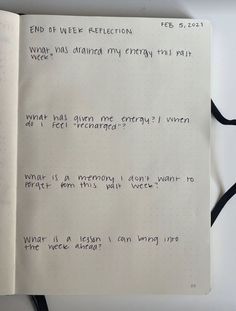 FEB 5, 2021
END OF WEEK REFLECTION
What has drained my energy this past
week?
What has given me energy? / When
do I feel "recharged"?
What is a memory I don't want to
forget from this past week?
What is a lesson I can bring into
the week ahead?